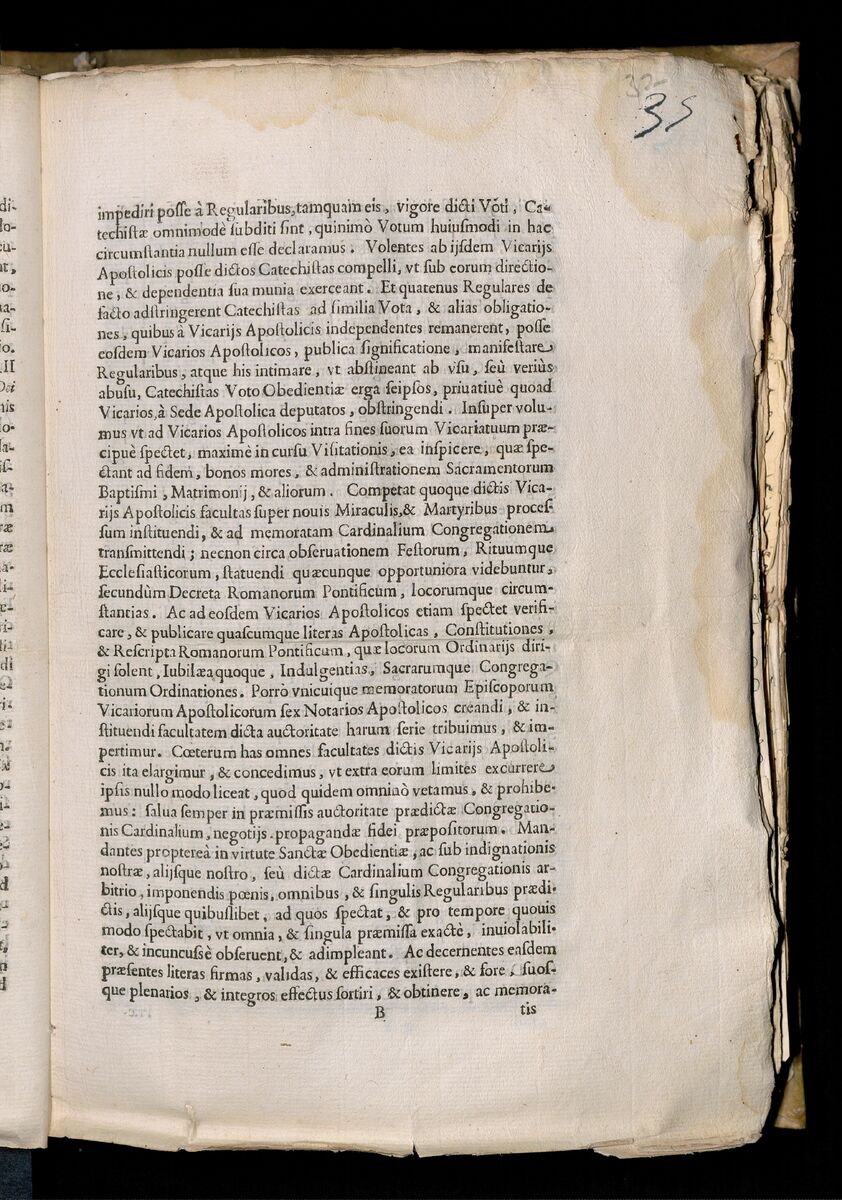 32
35
impediri posse à Regularibus, tamquam eis, vigore dicti Voti, Ca-
techistæ omnimodè subditi sint, quinimò Votum huiusmodi in hac
circumstantia nullum esse declaramus. Volentes ab ijsdem Vicarijs
Apostolicis posse dictos Catechistas compelli, vt sub eorum directio-
ne, & dependentia sua munia exerceant. Et quatenus Regulares de
facto adstringerent Catechistas ad similia Vota, & alias obligatio-
nes, quibus à Vicarijs Apostolicis independentes remanerent, posse
eosdem Vicarios Apostolicos, publica significatione, manifestare
Regularibus, atque his intimare, vt abstineant ab vsu, seù veriùs
abusu, Catechistas Voto Obedientiæ erga seipsos, priuatiuè quoad
Vicarios à Sede Apostolica deputatos, obstringendi. Insuper volu-
mus vt ad Vicarios Apostolicos intra fines suorum Vicariatuum præ-
cipuè spectet, maximè in cursu Visitationis, ea inspicere, quæ spe-
ctant ad fidem, bonos mores, & administrationem Sacramentorum
Baptismi, Matrimonij, & aliorum. Competat quoque dictis Vica-
rijs Apostolicis facultas super nouis Miraculis, & Martyribus proces-
sum instituendi, & ad memoratam Cardinalium Congregationem
transmittendi; necnon circa obseruationem Festorum, Rituumque
Ecclesiasticorum, statuendi quæcunque opportuniora videbuntur,
secundùm Decreta Romanorum Pontificum, locorumque circum-
stantias. Ac ad eosdem Vicarios Apostolicos etiam spectet verifi-
care, & publicare quascumque literas Apostolicas, Constitutiones,
& Rescripta Romanorum Pontificum, quæ locorum Ordinarijs diri-
gi solent, Iubilæa quoque, Indulgentias, Sacrarumque Congrega-
tionum Ordinationes. Porrò vnicuique memoratorum Episcoporum
Vicariorum Apostolicorum sex Notarios Apostolicos creandi, & in-
stituendi facultatem dicta auctoritate harum serie tribuimus, & im-
pertimur. Cœterum has omnes facultates dictis Vicarijs Apostoli-
cis ita elargimur, & concedimus, vt extra eorum limites excurrere
ipsis nullo modo liceat, quod quidem omninò vetamus, & prohibe-
mus: salua semper in præmissis auctoritate prædictæ Congregatio-
nis Cardinalium, negotijs propagandæ fidei præpositorum. Man-
dantes proptereà in virtute Sanctæ Obedientiæ, ac sub indignationis
nostræ, alijsque nostro, seù dictæ Cardinalium Congregationis ar-
bitrio, imponendis pœnis, omnibus, & singulis Regularibus prædi-
ctis, alijsque quibuslibet, ad quos spectat, & pro tempore quouis
modo spectabit, vt omnia, & singula præmissa exactè, inuiolabili-
ter, & incuncussè obseruent, & adimpleant. Ac decernentes easdem
præsentes literas firmas, validas, & efficaces existere, & fore, suos-
que plenarios, & integros effectus sortiri, & obtinere, ac memora-
B tis